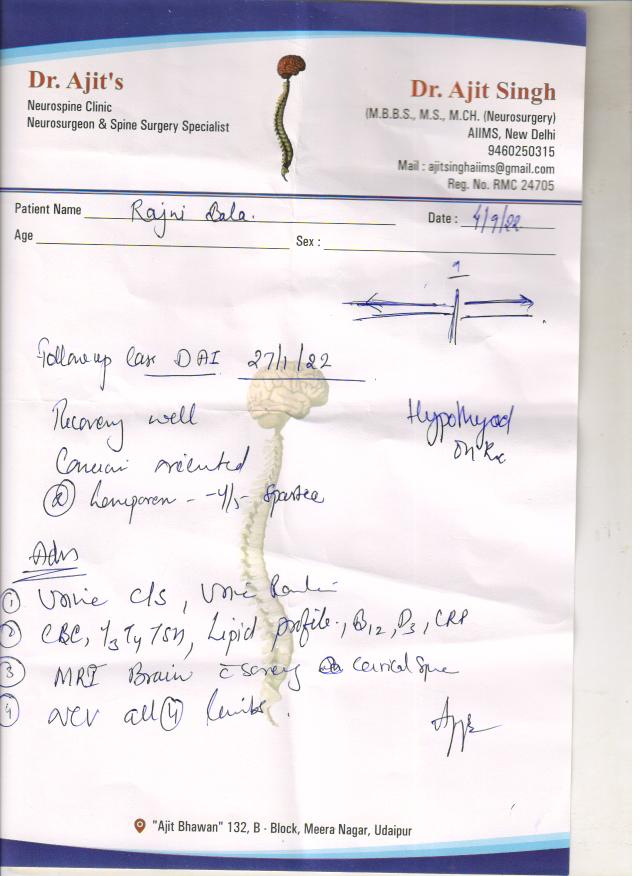 Dr. Ajit's
Neurospine Clinic
Neurosurgeon & Spine Surgery Specialist
Dr. Ajit Singh
(M.B.B.S., M.S., M.CH. (Neurosurgery)
AIIMS, New Delhi
9460250315
Mail : ajitsinghaiims@gmail.com
Reg. No. RMC 24705
Patient Name Rajni Bala.
Date : 4/9/22
Age Sex :
Followup Case DAI 27/1/22
Recovery well
Hypothyroid
on Rx
Conscious oriented
(R) hemiparesis -4/5
Adv
① Urine C/S, Urine Routine
② CBC, T3 T4 TSH, Lipid profile, B12, D3, CRP
③ MRI Brain c̄ screening cervical spine
④ NCV all ④ limbs.
"Ajit Bhawan" 132, B - Block, Meera Nagar, Udaipur